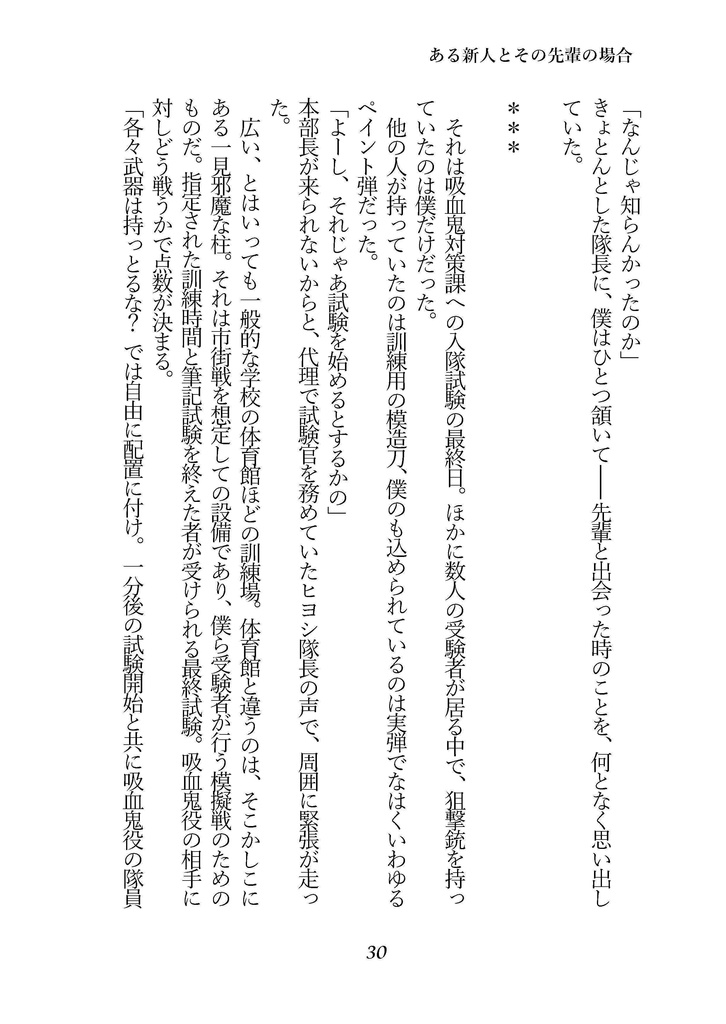 ある新人とその先輩の場合
「なんじゃ知らんかったのか」
きょとんとした隊長に、僕はひとつ頷いて――先輩と出会った時のことを、何となく思い出し
ていた。
＊＊＊
それは吸血鬼対策課への入隊試験の最終日。ほかに数人の受験者が居る中で、狙撃銃を持っ
ていたのは僕だけだった。
他の人が持っていたのは訓練用の模造刀、僕のも込められているのは実弾でなはくいわゆる
ペイント弾だった。
「よーし、それじゃあ試験を始めるとするかの」
本部長が来られないからと、代理で試験官を務めていたヒヨシ隊長の声で、周囲に緊張が走っ
た。
広い、とはいっても一般的な学校の体育館ほどの訓練場。体育館と違うのは、そこかしこに
ある一見邪魔な柱。それは市街戦を想定しての設備であり、僕ら受験者が行う模擬戦のための
ものだ。指定された訓練時間と筆記試験を終えた者が受けられる最終試験。吸血鬼役の相手に
対しどう戦うかで点数が決まる。
「各々武器は持っとるな？　では自由に配置に付け。一分後の試験開始と共に吸血鬼役の隊員
30